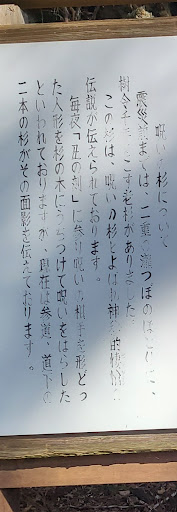 呪いの杉について
震災前までは、二重の滝つぼのほとりに、
樹令千年をこす老杉がありました
この杉は、呪いの杉とよばれ神
伝説が伝えられております。
毎夜「丑の刻」に参り呪い 相手を形どっ
た人形を杉の木にうちつけて呪いをはらした
といわれておりますが、現在は参道、道下の
二本の杉がその面影を伝えております。